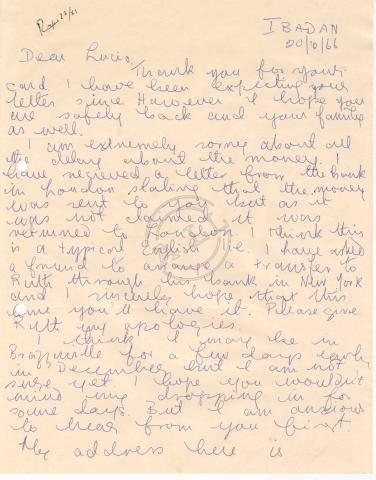 IBADAN
20/10/66
Dear Lucio,
Thank you for your
card. I have been expecting your
letter since. However I hope you
are safely back and your family
as well.
I am extremely sorry about all
the delay about the money. I
have recieved a letter from the bank
in London stating that the money
was sent to you but as it
was not claimed it was
returned to London. I think this
is a typical English lie. I have asked
a friend to arrange a transfer to
Ruth through his bank in New York
and I sincerely hope that this
time you'll have it. Please give
Ruth my apologies.
I think I may be in
for a few days early
in December but I am not
sure yet. I hope you wouldn't
mind my dropping in for
some days. But I am anxious
to hear from you first.
My address here is